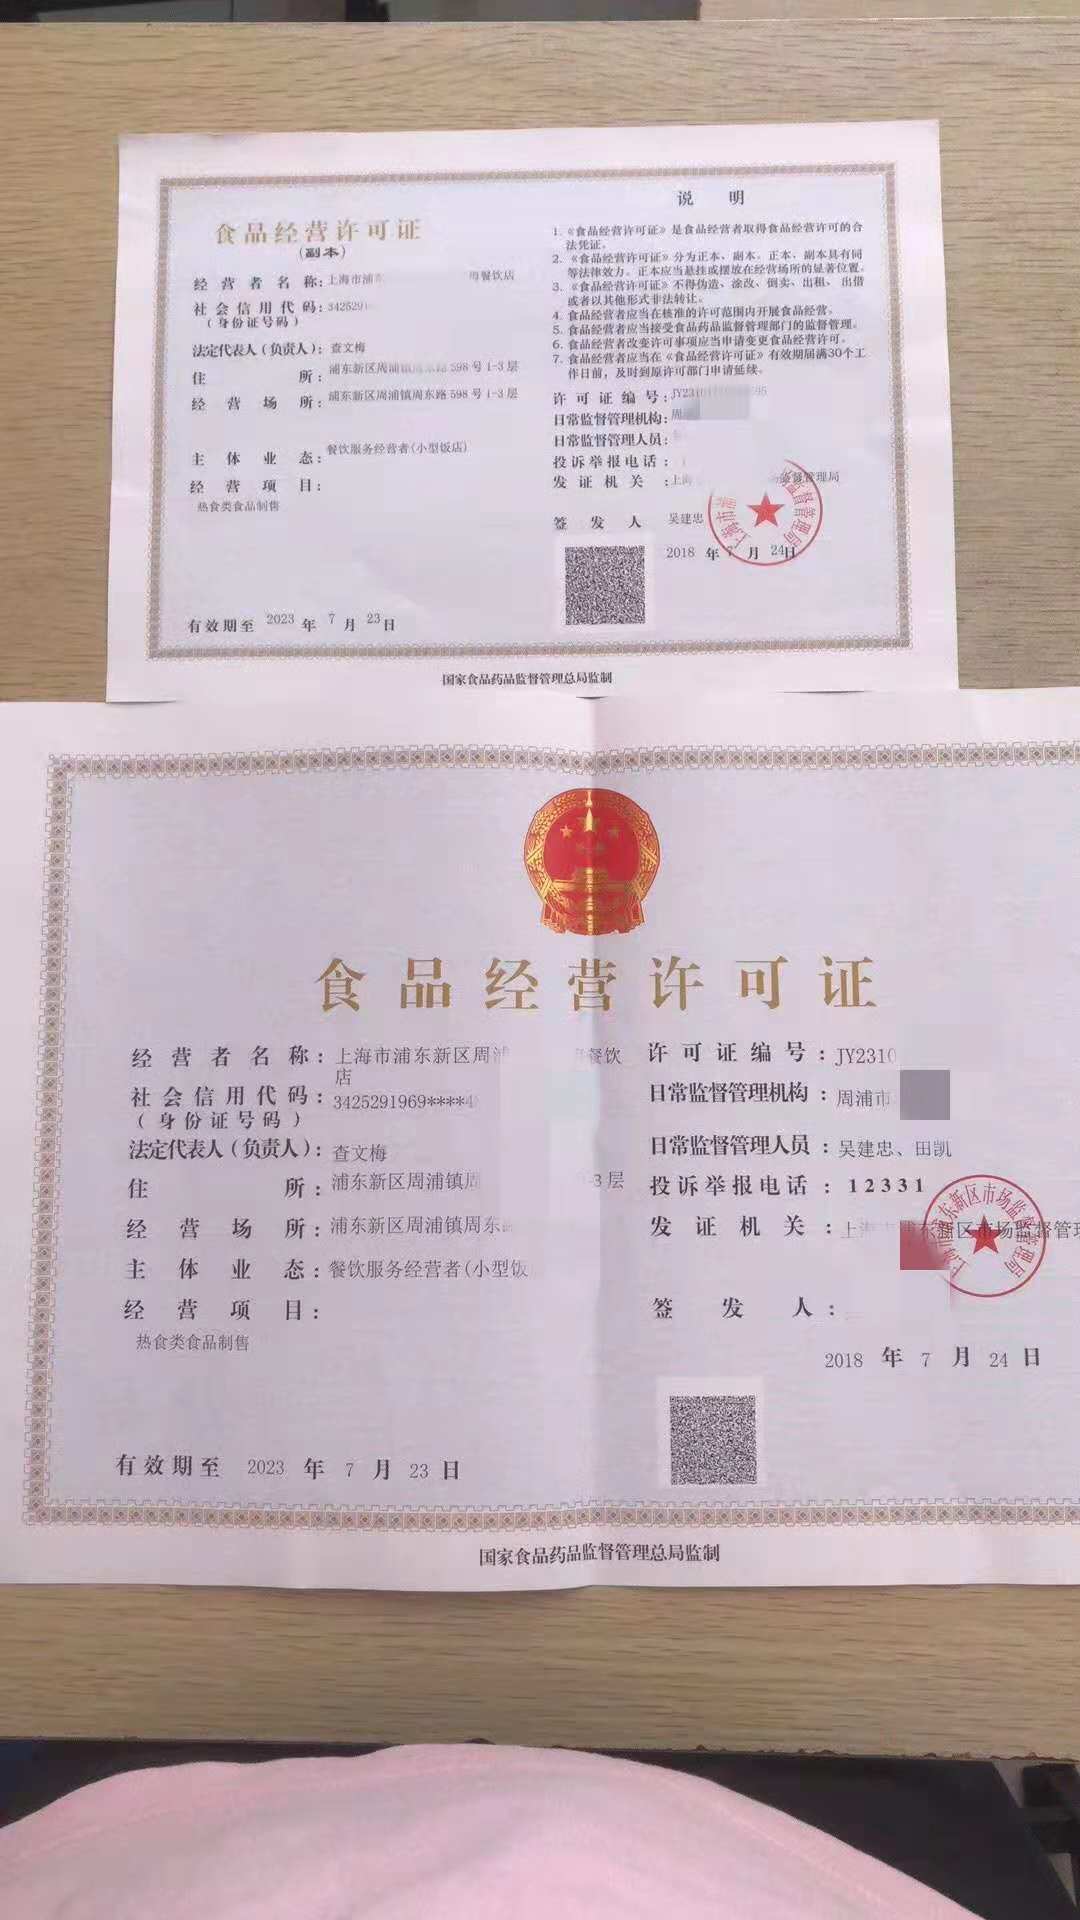 食品经营许可证
(副本)
经营者名称:上海市浦 餐饮店
社会信用代码:342529
(身份证号码)
法定代表人(负责人):查文梅
住所:浦东新区周浦镇周东路598号1-3层
经营场所:浦东新区周浦镇周东路598号1-3层
主体业态:餐饮服务经营者(小型饭店)
经营项目:
热食类食品制售
有效期至 2023 年 7 月 23 日
说 明
1.《食品经营许可证》是食品经营者取得食品经营许可的合
法凭证。
2.《食品经营许可证》分为正本、副本。正本、副本具有同
等法律效力。正本应当悬挂或摆放在经营场所的显著位置。
3.《食品经营许可证》不得伪造、涂改、倒卖、出租、出借
或者以其他形式非法转让。
4.食品经营者应当在核准的许可范围内开展食品经营。
5.食品经营者应当接受食品药品监督管理部门的监督管理。
6.食品经营者改变许可事项应当申请变更食品经营许可。
7.食品经营者应当在《食品经营许可证》有效期届满30个工
作日前,及时到原许可部门申请延续。
许可证编号:JY2310
日常监督管理机构:周
日常监督管理人员:
投诉举报电话:
发证机关:上海 监督管理局
签发人 吴建忠
2018 年 7 月 24日
国家食品药品监督管理总局监制
食品经营许可证
经营者名称:上海市浦东新区周浦 餐饮
店
社会信用代码:3425291969****4
(身份证号码)
法定代表人(负责人):查文梅
住所:浦东新区周浦镇周 -3层
经营场所:浦东新区周浦镇周东
主体业态:餐饮服务经营者(小型饭
经营项目:
热食类食品制售
有效期至 2023 年 7 月 23 日
许可证编号:JY2310
日常监督管理机构:周浦市
日常监督管理人员:吴建忠、田凯
投诉举报电话:12331
发证机关:上海市浦东新区市场监督管理
签发人:
2018 年 7 月 24 日
国家食品药品监督管理总局监制